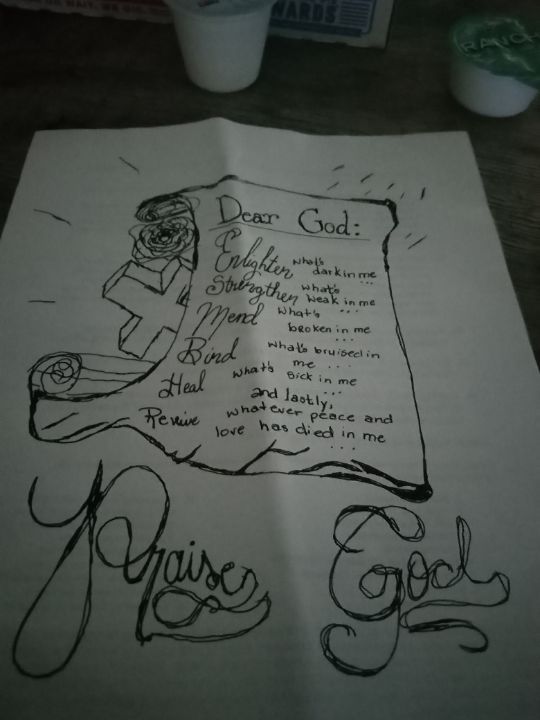 WARDS
RANCH
Dear God:
Enlighten what's
dark in me
...
Strengthen what's
weak in me
...
Mend what's
broken in me
...
Bind what's bruised in
me ...
Heal what's sick in me
...
and lastly,
Revive whatever peace and
love has died in me
...
Praise God